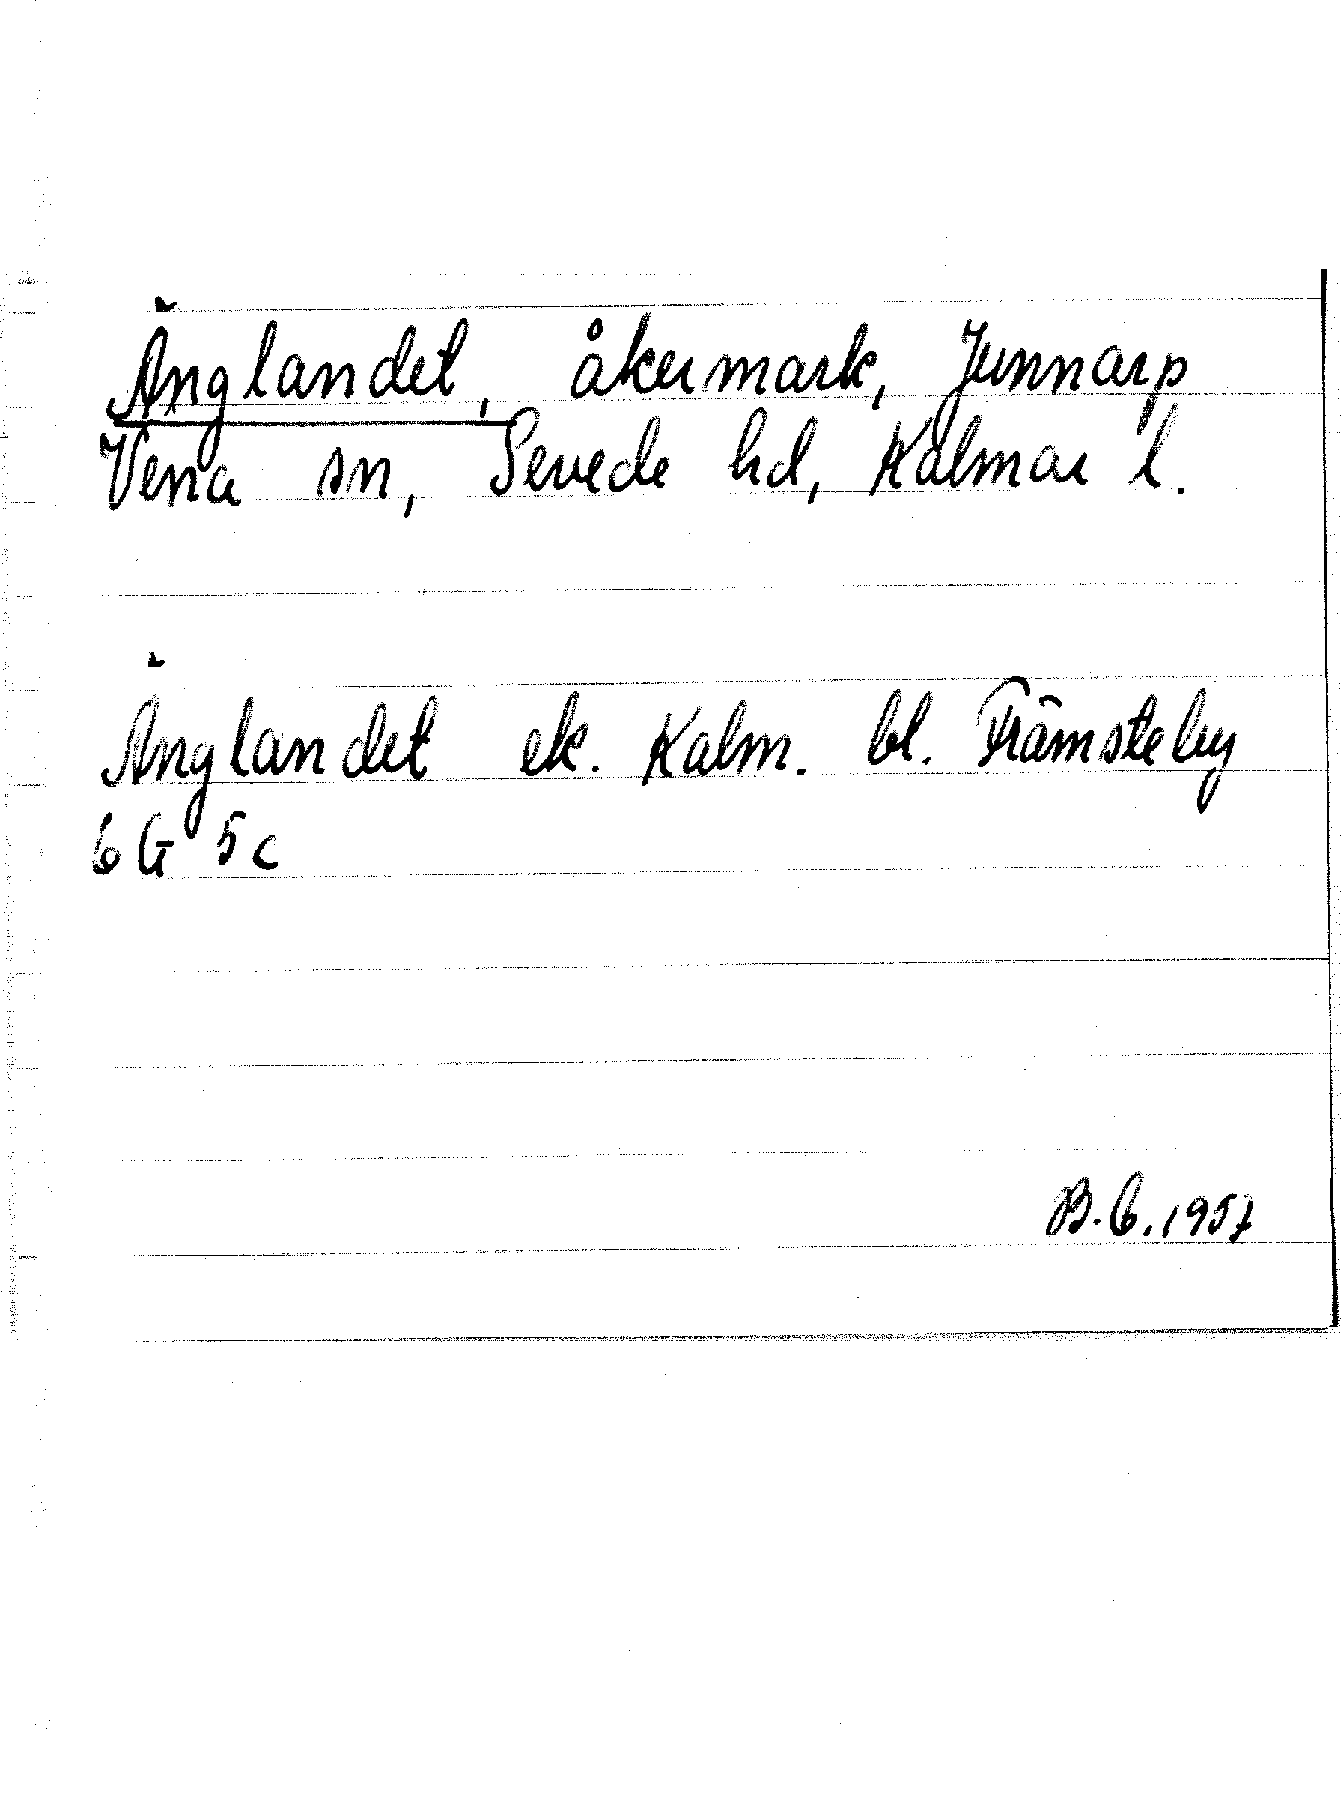 Änglandet, åkermark, Junnarp
Vena sn, Sevede hd, Kalmar l.
Änglandet ek. Kalm. bl. Främsteby
6 G 5 c
B.C.1957